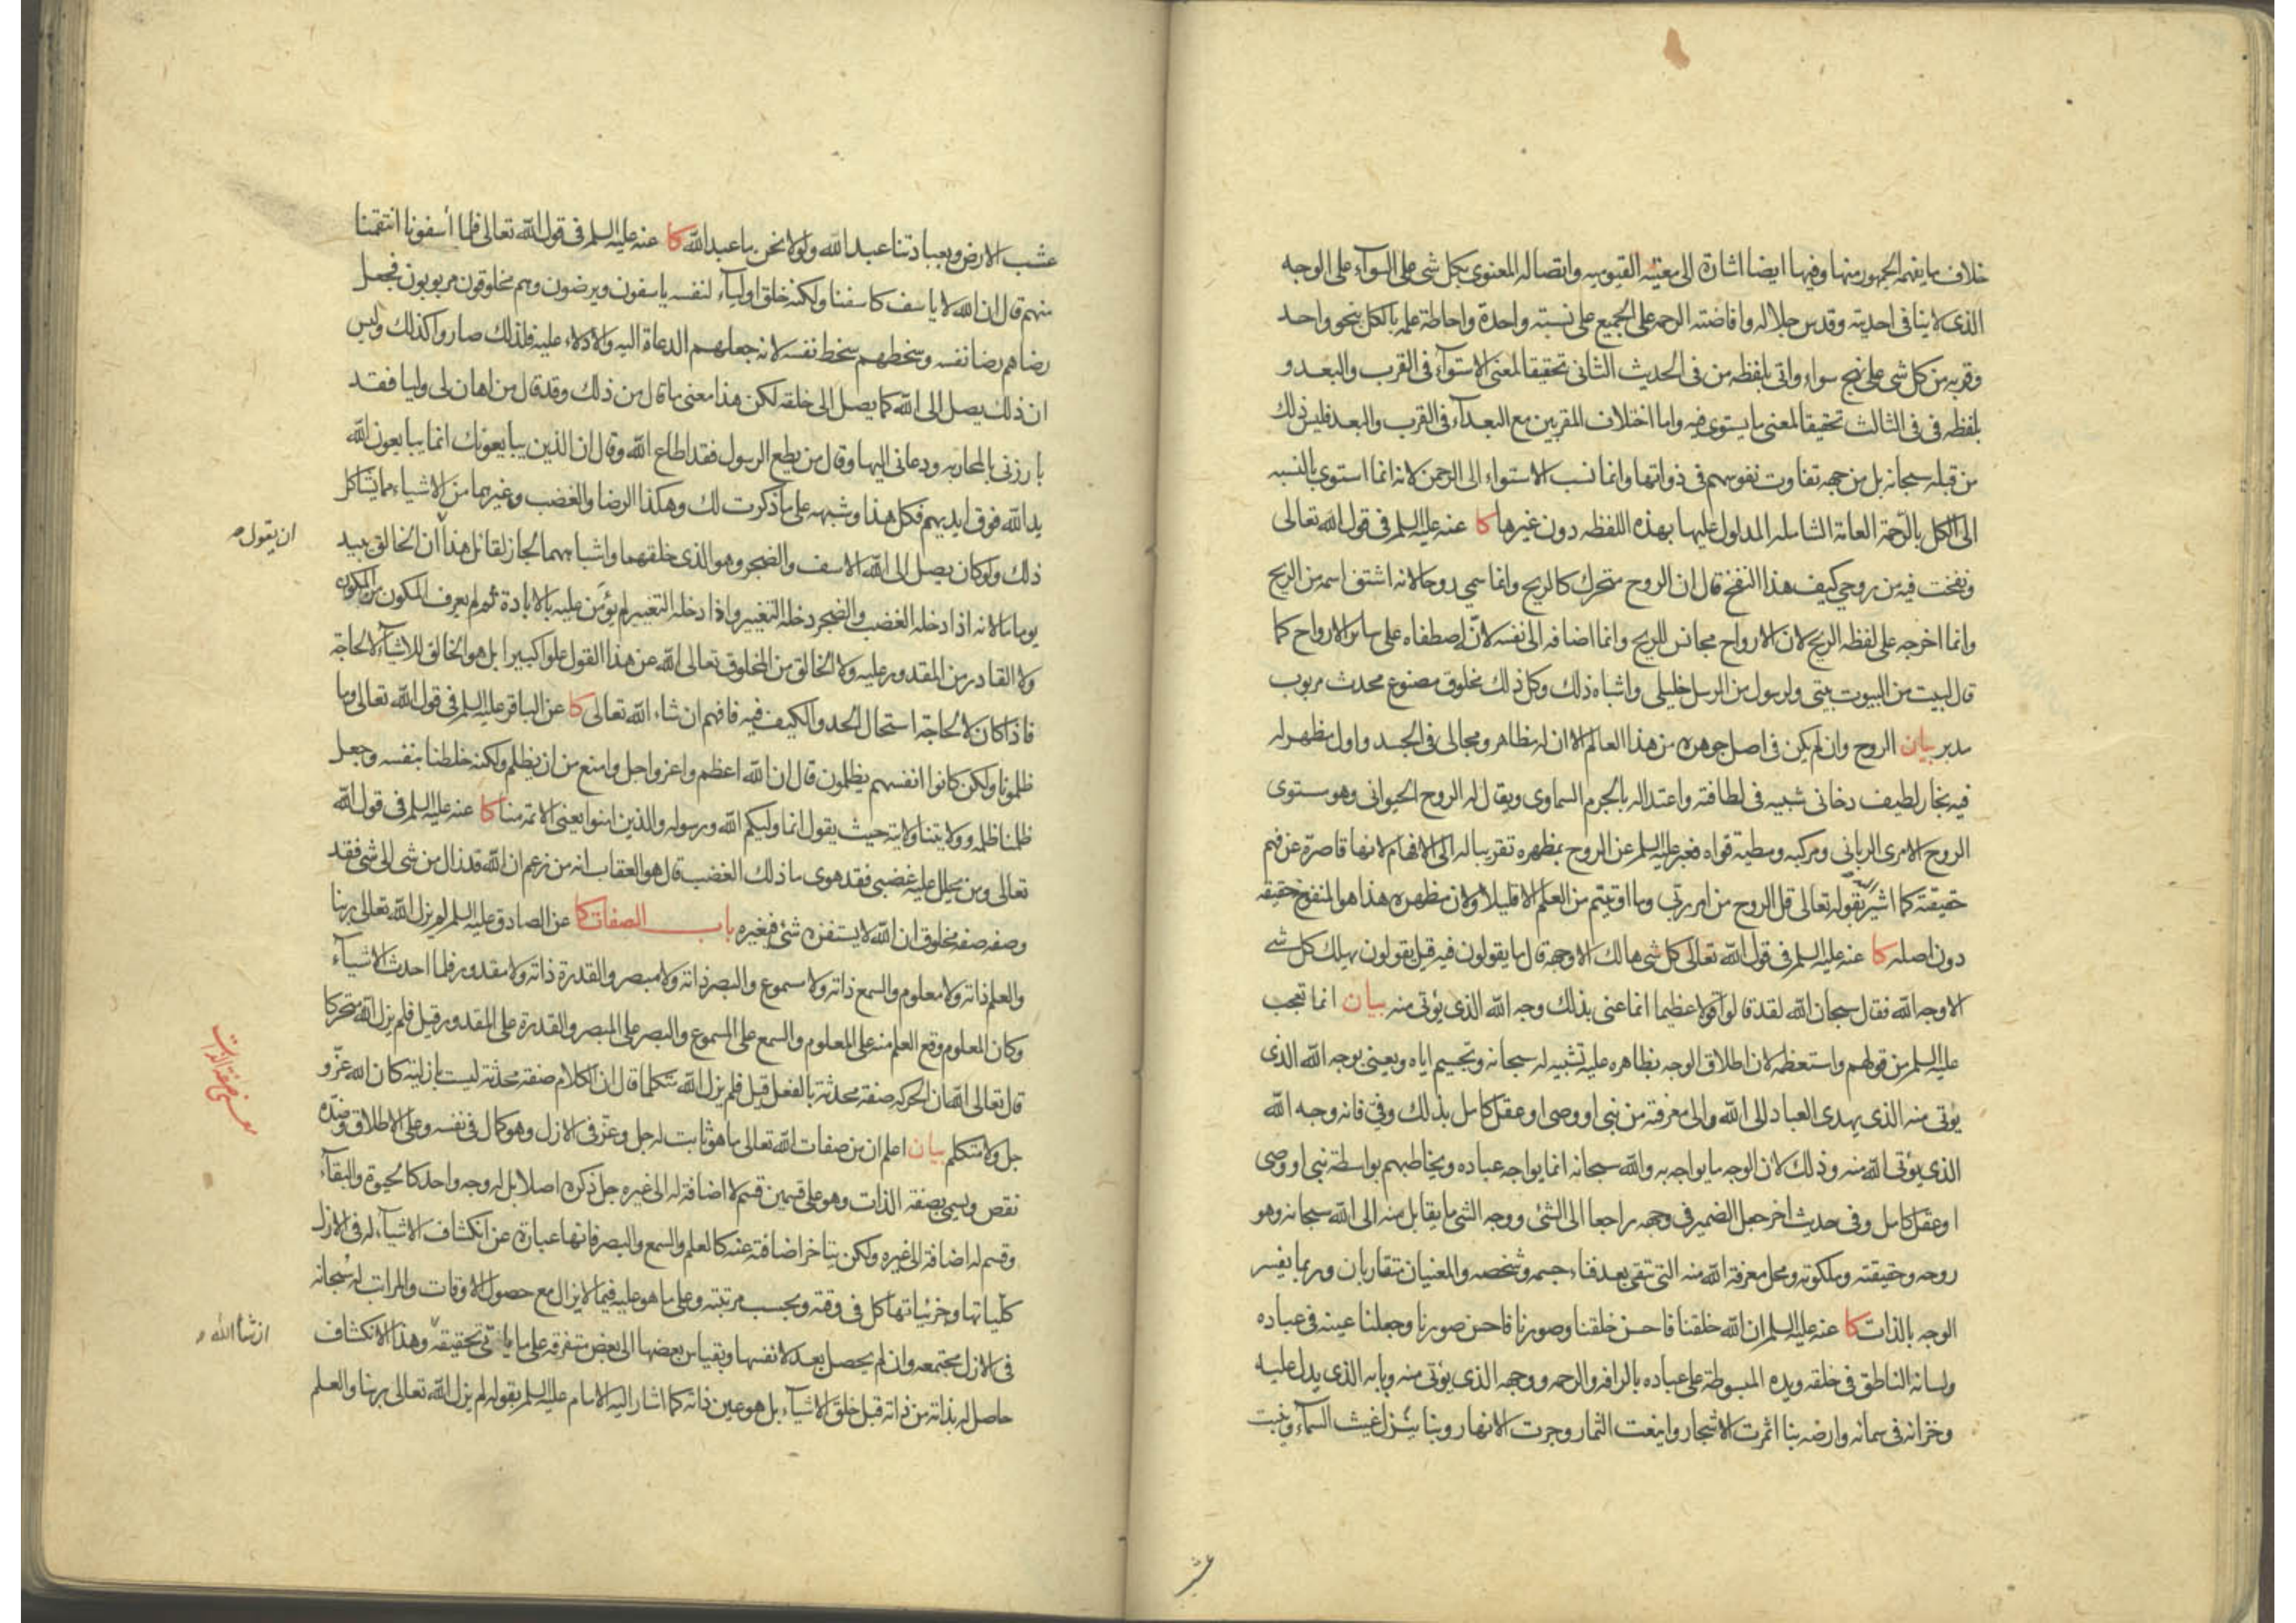 خلاف ما يفهمه الجمهور منها وفيها ايضا اشارة الى معيته القيوميه واتصاله المعنوى بكل شى على السوآء على الوجه
الذى لا ينافى احديته وقدس جلاله وافاضته الرحمه على الجميع على نسبته واحدة واحاطة علمه بالكل بنحو واحد
وقربه من كل شى على نهج سواء واتى بلفظه من فى الحديث الثانى تحقيقا لمعنى الاستوآء فى القرب والبعد و
بلفظه فى فى الثالث تحقيقا لمعنى ما يستوى فيه واما اختلاف المقربين مع البعدآء فى القرب والبعد فليس ذلك
من قبله سبحانه بل من جهه تفاوت نفوسهم فى ذواتها وانما نسب الاستواء الى الرحمن لانه انما استوى بالنسبه
الى الكل بالرحمة العامة الشامله المدلول عليها بهذه اللفظه دون غيرها كا عنه عليه السلم فى قول الله تعالى
ونفخت فيه من روحي كيف هذا النفخ قال ان الروح متحرك كالريح وانما سمي روحا لانه اشتق اسمه من الريح
وانما اخرجه على لفظه الريح لان الارواح مجانس للريح وانما اضافه الى نفسه لانه اصطفاه على ساير الارواح كما
قال لبيت من البيوت بيتى ولرسول من الرسل خليلى واشباه ذلك وكل ذلك مخلوق مصنوع محدث مربوب
مدبر بيان الروح وان لم يكن فى اصل جوهره من هذا العالم الا ان له مظاهر ومجالى فى الجسد واول مظهر له
فيه بخار لطيف دخانى شبيه فى لطافته واعتداله بالجرم السماوى ويقال له الروح الحيوانى وهو مستوى
الروح الامرى الربانى ومركبه ومطية قواه فعبر عليه السلم عن الروح بمظهره تقريبا له الى الافهام لانها قاصرة عن فهم
حقيقته كما اشير بقوله تعالى قل الروح من امر ربي وما اوتيتم من العلم الا قليلا ولان مظهره هذا هو المنفوخ حقيقه
دون اصله كا عنه عليه السلم فى قول الله تعالى كل شى هالك الا وجهه قال ما يقولون فيه قيل يقولون يهلك كل شى
الا وجه الله فقال سبحان الله لقد قالوا قولا عظيما انما عنى بذلك وجه الله الذى يؤتى منه بيان انما تعجب
عليه السلم من قولهم واستعظمه لان اطلاق الوجه بظاهره عليه تشبيه له سبحانه وتجسيم اياه ويعنى بوجه الله الذى
يؤتى منه الذى يهدى العباد الى الله والى معرفته من نبى او وصى او عقل كامل بذلك وفى فانه وجه الله
الذى يؤتى الله منه وذلك لان الوجه ما يواجه به والله سبحانه انما يواجه عباده ويخاطبهم بواسطة نبى او وصى
او عقل كامل وفى حديث اخر جعل الضمير فى وجهه راجعا الى الشئ ووجه الشئ ما يقابل منه الى الله سبحانه وهو
روحه وحقيقته وملكوته ومحل معرفة الله منه التى تبقى بعد فناء جسمه وشخصه والمعنيان متقاربان وربما يفسر
الوجه بالذات كا عنه عليه السلم ان الله خلقنا فاحسن خلقنا وصورنا فاحسن صورنا وجعلنا عينه فى عباده
ولسانه الناطق فى خلقه ويده المبسوطة على عباده بالرافه والرحمه ووجهه الذى يؤتى منه وبابه الذى يدل عليه
وخزانه فى سمائه وارضه بنا اثمرت الاشجار واينعت الثمار وجرت الانهار وبنا ينزل غيث السمآء وينبت
عشب
عشب الارض وبعبادتنا عبد الله ولولا نحن ما عبد الله كا عنه عليه السلم فى قول الله تعالى فلما أسفونا انتقمنا
منهم قال ان الله لا ياسف كاسفنا ولكنه خلق اوليآء لنفسه ياسفون ويرضون وهم مخلوقون مربوبون فجعل
رضاهم رضا نفسه وسخطهم سخط نفسه لانه جعلهم الدعاة اليه والادلاء عليه فلذلك صاروا كذلك وليس
ان ذلك يصل الى الله كما يصل الى خلقه لكن هذا معنى ما قال من ذلك وقد قال من اهان لى وليا فقد
بارزنى بالمحاربه ودعانى اليها وقال من يطع الرسول فقد اطاع الله وقال ان الذين يبايعونك انما يبايعون الله
يد الله فوق ايديهم فكل هذا وشبهه على ما ذكرت لك وهكذا الرضا والغضب وغيرهما من الاشياء مما يشاكل
ذلك ولو كان يصل الى الله الاسف والضجر وهو الذى خلقهما واشباههما لجاز لقائل هذا ان الخالق يبيد
ان يقول
يوما ما لانه اذا دخله الغضب والضجر دخله التغيير واذا دخله التغيير لم يؤمن عليه بالابادة ثم لم يعرف المكون من المكون
ولا القادر من المقدور عليه ولا الخالق من المخلوق تعالى الله عن هذا القول علوا كبيرا بل هو الخالق للاشيآء لا لحاجة
فاذا كان لا لحاجة استحال الحد والكيف فيه فافهم ان شاء الله تعالى كا عن الباقر عليه السلم فى قول الله تعالى وما
ظلمونا ولكن كانوا انفسهم يظلمون قال ان الله اعظم واعز واجل وامنع من ان يظلم ولكنه خلطنا بنفسه وجعل
ظلمنا ظلمه وولايتنا ولايته حيث يقول انما وليكم الله ورسوله والذين امنوا يعنى الائمة منا كا عنه عليه السلم فى قول الله
تعالى ومن يحلل عليه غضبى فقد هوى ما ذلك الغضب قال هو العقاب انه من زعم ان الله قد زال من شى الى شى فقد
وصفه صفه مخلوق ان الله لا يستفزه شئ فيغيره باب الصفات كا عن الصادق عليه السلم لم يزل الله تعالى ربنا
والعلم ذاته ولا معلوم والسمع ذاته ولا مسموع والبصر ذاته ولا مبصر والقدرة ذاته ولا مقدور فلما احدث الاشيآء
وكان المعلوم وقع العلم منه على المعلوم والسمع على المسموع والبصر على المبصر والقدرة على المقدور قيل فلم يزل الله متحركا
قال تعالى الله ان الحركه صفة محدثة بالفعل قيل فلم يزل الله متكلما قال ان الكلام صفة محدثة ليست بازليه كان الله عز و
جل ولا متكلم بيان اعلم ان من صفات الله تعالى ما هو ثابت له جل وعز فى الازل وهو كمال فى نفسه وعلى الاطلاق وضده
نقص ويسمى بصفة الذات وهو على قسمين قسم لا اضافة له الى غيره جل ذكره اصلا بل له وجه واحد كالحيوة والبقآء
وقسم له اضافة الى غيره ولكن يتاخر اضافته عنه كالعلم والسمع والبصر فانها عبارة عن انكشاف الاشيآء له فى الازل
كلياتها وجزئياتها كل فى وقته وبحسب مرتبته وعلى ما هو عليه فيما لا يزال مع حصول الاوقات والمراتب له سبحانه
فى الازل مجتمعه وان لم يحصل بعد لانفسها وبقياس بعضها الى بعض متفرقه على ما ياتى تحقيقه وهذا الانكشاف
ان شاء الله
حاصل له بذاته من ذاته قبل خلق الاشيآء بل هو عين ذاته كما اشار اليه الامام عليه السلم بقوله لم يزل الله تعالى ربنا والعلم